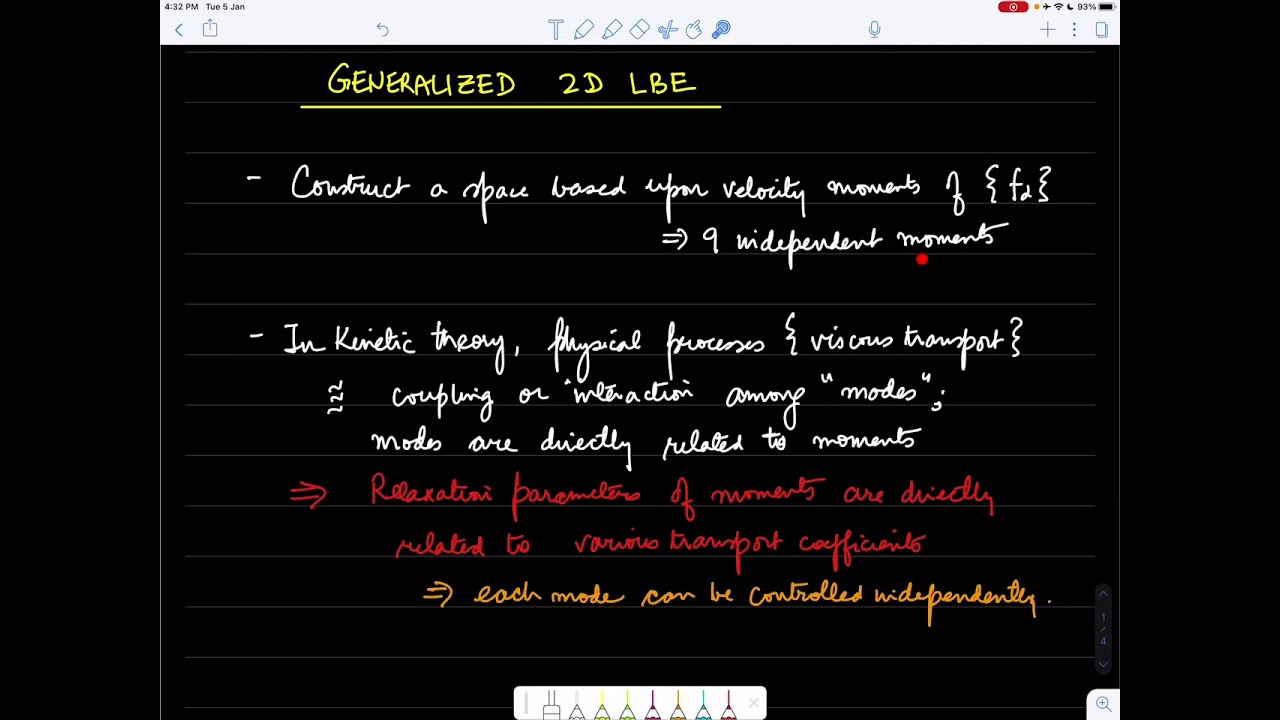 4:32 PM Tue 5 Jan
93%
GENERALIZED 2D LBE
- Construct a space based upon velocity moments of {fα}
⇒ 9 independent moments
- In Kinetic theory, physical processes {viscous transport}
≈ coupling or interaction among "modes";
modes are directly related to moments
⇒ Relaxation parameters of moments are directly
related to various transport coefficients
⇒ each mode can be controlled independently.
1
/
4